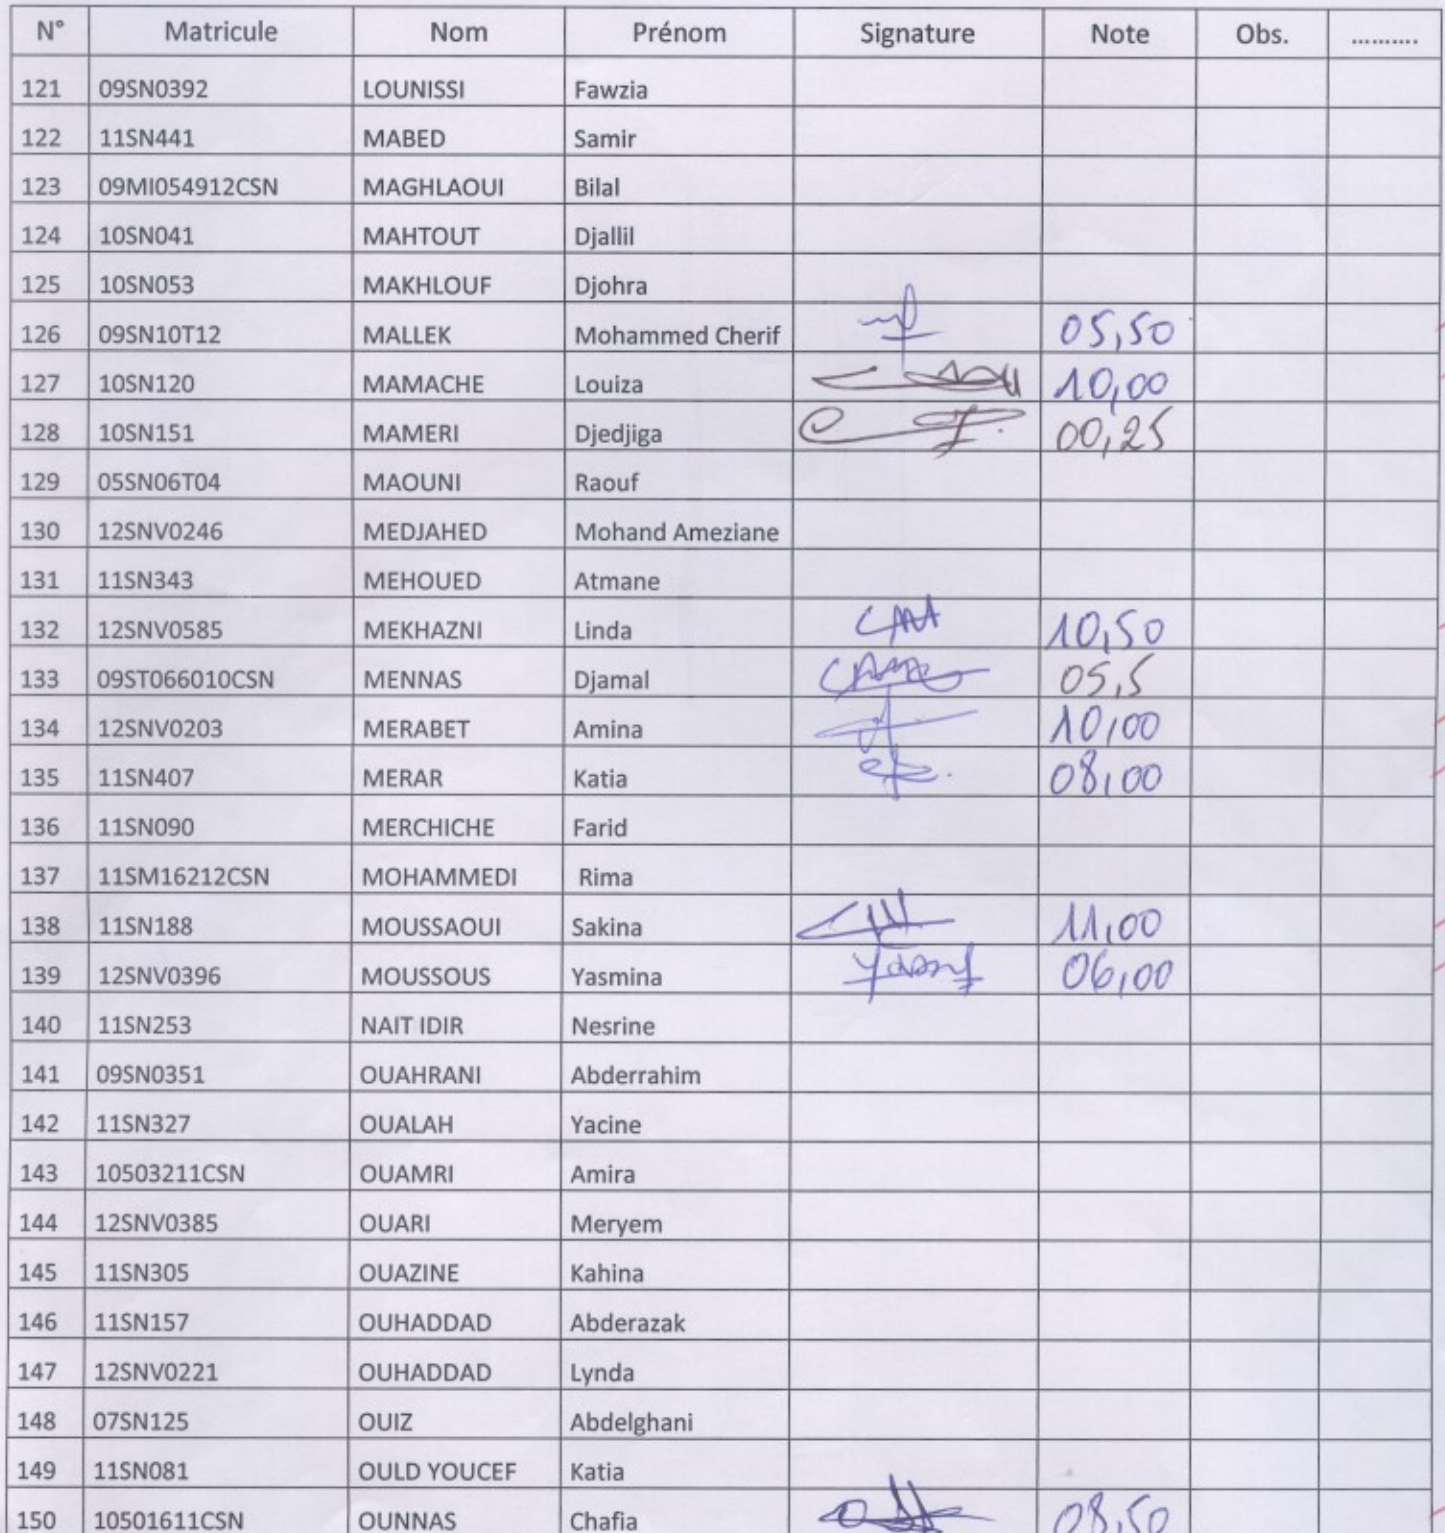 N° Matricule Nom Prénom Signature Note Obs. ..........
121 09SN0392 LOUNISSI Fawzia
122 11SN441 MABED Samir
123 09MI054912CSN MAGHLAOUI Bilal
124 10SN041 MAHTOUT Djallil
125 10SN053 MAKHLOUF Djohra
126 09SN10T12 MALLEK Mohammed Cherif 05,50
127 10SN120 MAMACHE Louiza 10,00
128 10SN151 MAMERI Djedjiga 00,25
129 05SN06T04 MAOUNI Raouf
130 12SNV0246 MEDJAHED Mohand Ameziane
131 11SN343 MEHOUED Atmane
132 12SNV0585 MEKHAZNI Linda 10,50
133 09ST066010CSN MENNAS Djamal 05,5
134 12SNV0203 MERABET Amina 10,00
135 11SN407 MERAR Katia 08,00
136 11SN090 MERCHICHE Farid
137 11SM16212CSN MOHAMMEDI Rima
138 11SN188 MOUSSAOUI Sakina 11,00
139 12SNV0396 MOUSSOUS Yasmina 06,00
140 11SN253 NAIT IDIR Nesrine
141 09SN0351 OUAHRANI Abderrahim
142 11SN327 OUALAH Yacine
143 10503211CSN OUAMRI Amira
144 12SNV0385 OUARI Meryem
145 11SN305 OUAZINE Kahina
146 11SN157 OUHADDAD Abderazak
147 12SNV0221 OUHADDAD Lynda
148 07SN125 OUIZ Abdelghani
149 11SN081 OULD YOUCEF Katia
150 10501611CSN OUNNAS Chafia 08,50